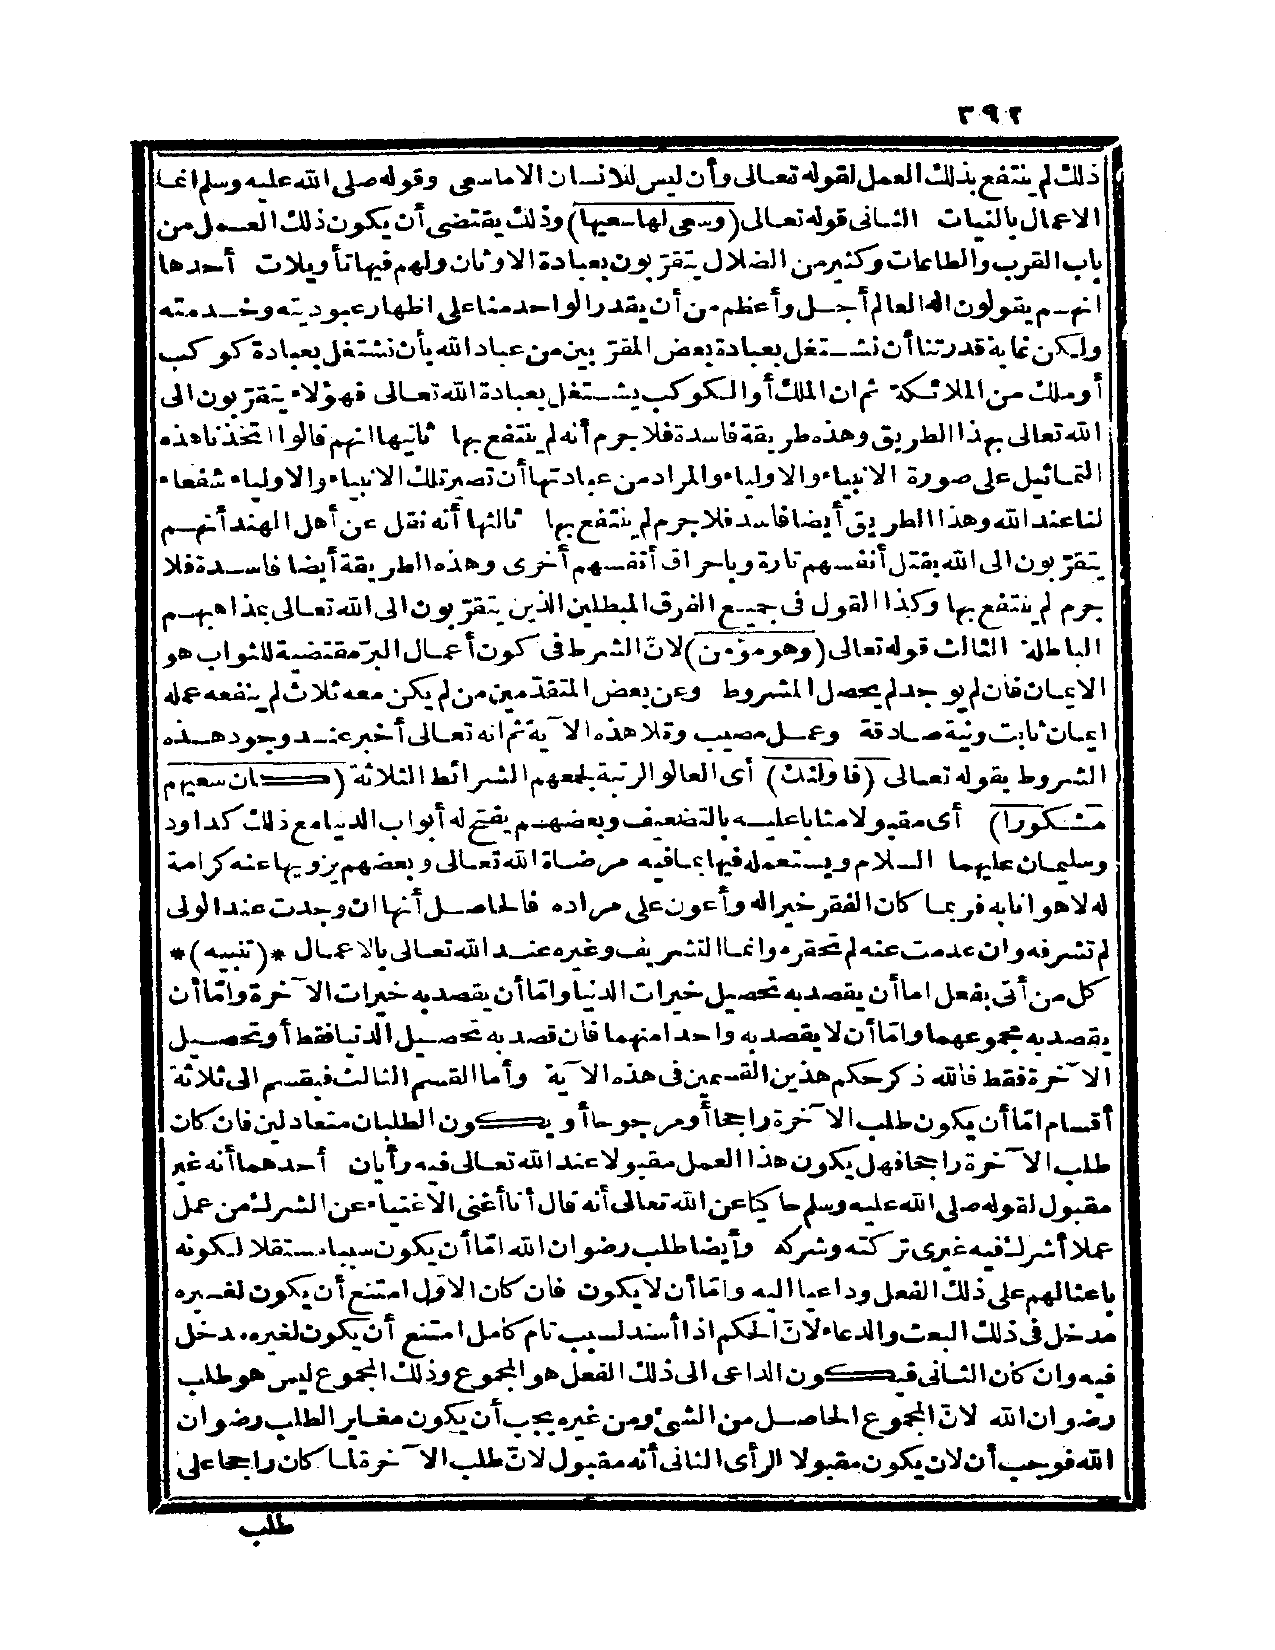 ٣٩٢
ذلك لم ينتفع بذلك العمل لقوله تعالى وأن ليس للانسان الا ما سعى وقوله صلى الله عليه وسلم انما
الاعمال بالنيات الثانى قوله تعالى (وسعى لها سعيها) وذلك يقتضى أن يكون ذلك العمل من
باب القرب والطاعات وكثير من الضلال يتقرّبون بعبادة الاوثان ولهم فيها تأويلات أحدها
انهم يقولون اله العالم أجل وأعظم من أن يقدر الواحد منا على اظهار عبوديته وخدمته
ولكن غاية قدرتنا أن نشتغل بعبادة بعض المقرّبين من عباد الله بأن نشتغل بعبادة كوكب
أو ملك من الملائكة ثم ان الملك أو الكوكب يشتغل بعبادة الله تعالى فهؤلاء يتقرّبون الى
الله تعالى بهذا الطريق وهذه طريقة فاسدة فلا جرم أنه لم ينتفع بها ثانيها انهم قالوا اتخذنا هذه
التماثيل على صورة الانبياء والاولياء والمراد من عبادتها أن تصير تلك الانبياء والاولياء شفعاء
لنا عند الله وهذا الطريق أيضا فاسد فلا جرم لم ينتفع بها ثالثها أنه نقل عن أهل الهند أنهم
يتقرّبون الى الله بقتل أنفسهم تارة وباحراق أنفسهم أخرى وهذه الطريقة أيضا فاسدة فلا
جرم لم ينتفع بها وكذا القول فى جميع الفرق المبطلين الذين يتقرّبون الى الله تعالى بمذاهبهم
الباطلة الثالث قوله تعالى (وهو مؤمن) لانّ الشرط فى كون أعمال البرّ مقتضية للثواب هو
الايمان فان لم يوجد لم يحصل المشروط وعن بعض المتقدّمين من لم يكن معه ثلاث لم ينفعه عمله
ايمان ثابت ونية صادقة وعمل مصيب وتلا هذه الآية ثم انه تعالى أخبر عند وجود هذه
الشروط بقوله تعالى (فاولئك) أى العالو الرتبة لجمعهم الشرائط الثلاثة (كان سعيهم
مشكورا) أى مقبولا مثابا عليه بالتضعيف وبعضهم يفتح له أبواب الدنيا مع ذلك كداود
وسليمان عليهما السلام ويستعمله فيها بما فيه مرضاة الله تعالى وبعضهم يزويها عنه كرامة
له لا هوانا به فربما كان الفقر خيرا له وأعون على مراده فالحاصل أنها ان وجدت عند الولى
لم تشرفه وان عدمت عنه لم تحقره وانما التشريف وغيره عند الله تعالى بالاعمال *(تنبيه)*
كل من أتى بفعل اما أن يقصد به تحصيل خيرات الدنيا وامّا أن يقصد به خيرات الآخرة وامّا أن
يقصد به مجموعهما وامّا أن لا يقصد به واحدا منهما فان قصد به تحصيل الدنيا فقط أو تحصيل
الآخرة فقط فالله ذكر حكم هذين القسمين فى هذه الآية وأما القسم الثالث فيقسم الى ثلاثة
أقسام امّا أن يكون طلب الآخرة راجحا أو مرجوحا أو يكون الطلبان متعادلين فان كان
طلب الآخرة راجحا فهل يكون هذا العمل مقبولا عند الله تعالى فيه رأيان أحدهما أنه غير
مقبول لقوله صلى الله عليه وسلم حاكيا عن الله تعالى أنه قال أنا أغنى الاغنياء عن الشرك من عمل
عملا أشرك فيه غيرى تركته وشركه وأيضا طلب رضوان الله امّا أن يكون سببا مستقلا لكونه
باعثا لهم على ذلك الفعل وداعيا اليه وامّا أن لا يكون فان كان الاوّل امتنع أن يكون لغيره
مدخل فى ذلك البعث والدعاء لانّ الحكم اذا أسند لسبب تام كامل امتنع أن يكون لغيره مدخل
فيه وان كان الثانى فيكون الداعى الى ذلك الفعل هو المجموع وذلك المجموع ليس هو طلب
رضوان الله لانّ المجموع الحاصل من الشئ ومن غيره يجب أن يكون مغاير الطلب رضوان
الله فوجب أن لا يكون مقبولا الرأى الثانى أنه مقبول لانّ طلب الآخرة لما كان راجحا على
طلب